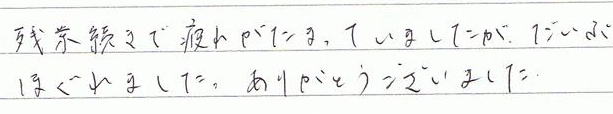 残業続きで疲れがたまっていましたが、だいぶ
ほぐれました。ありがとうございました。